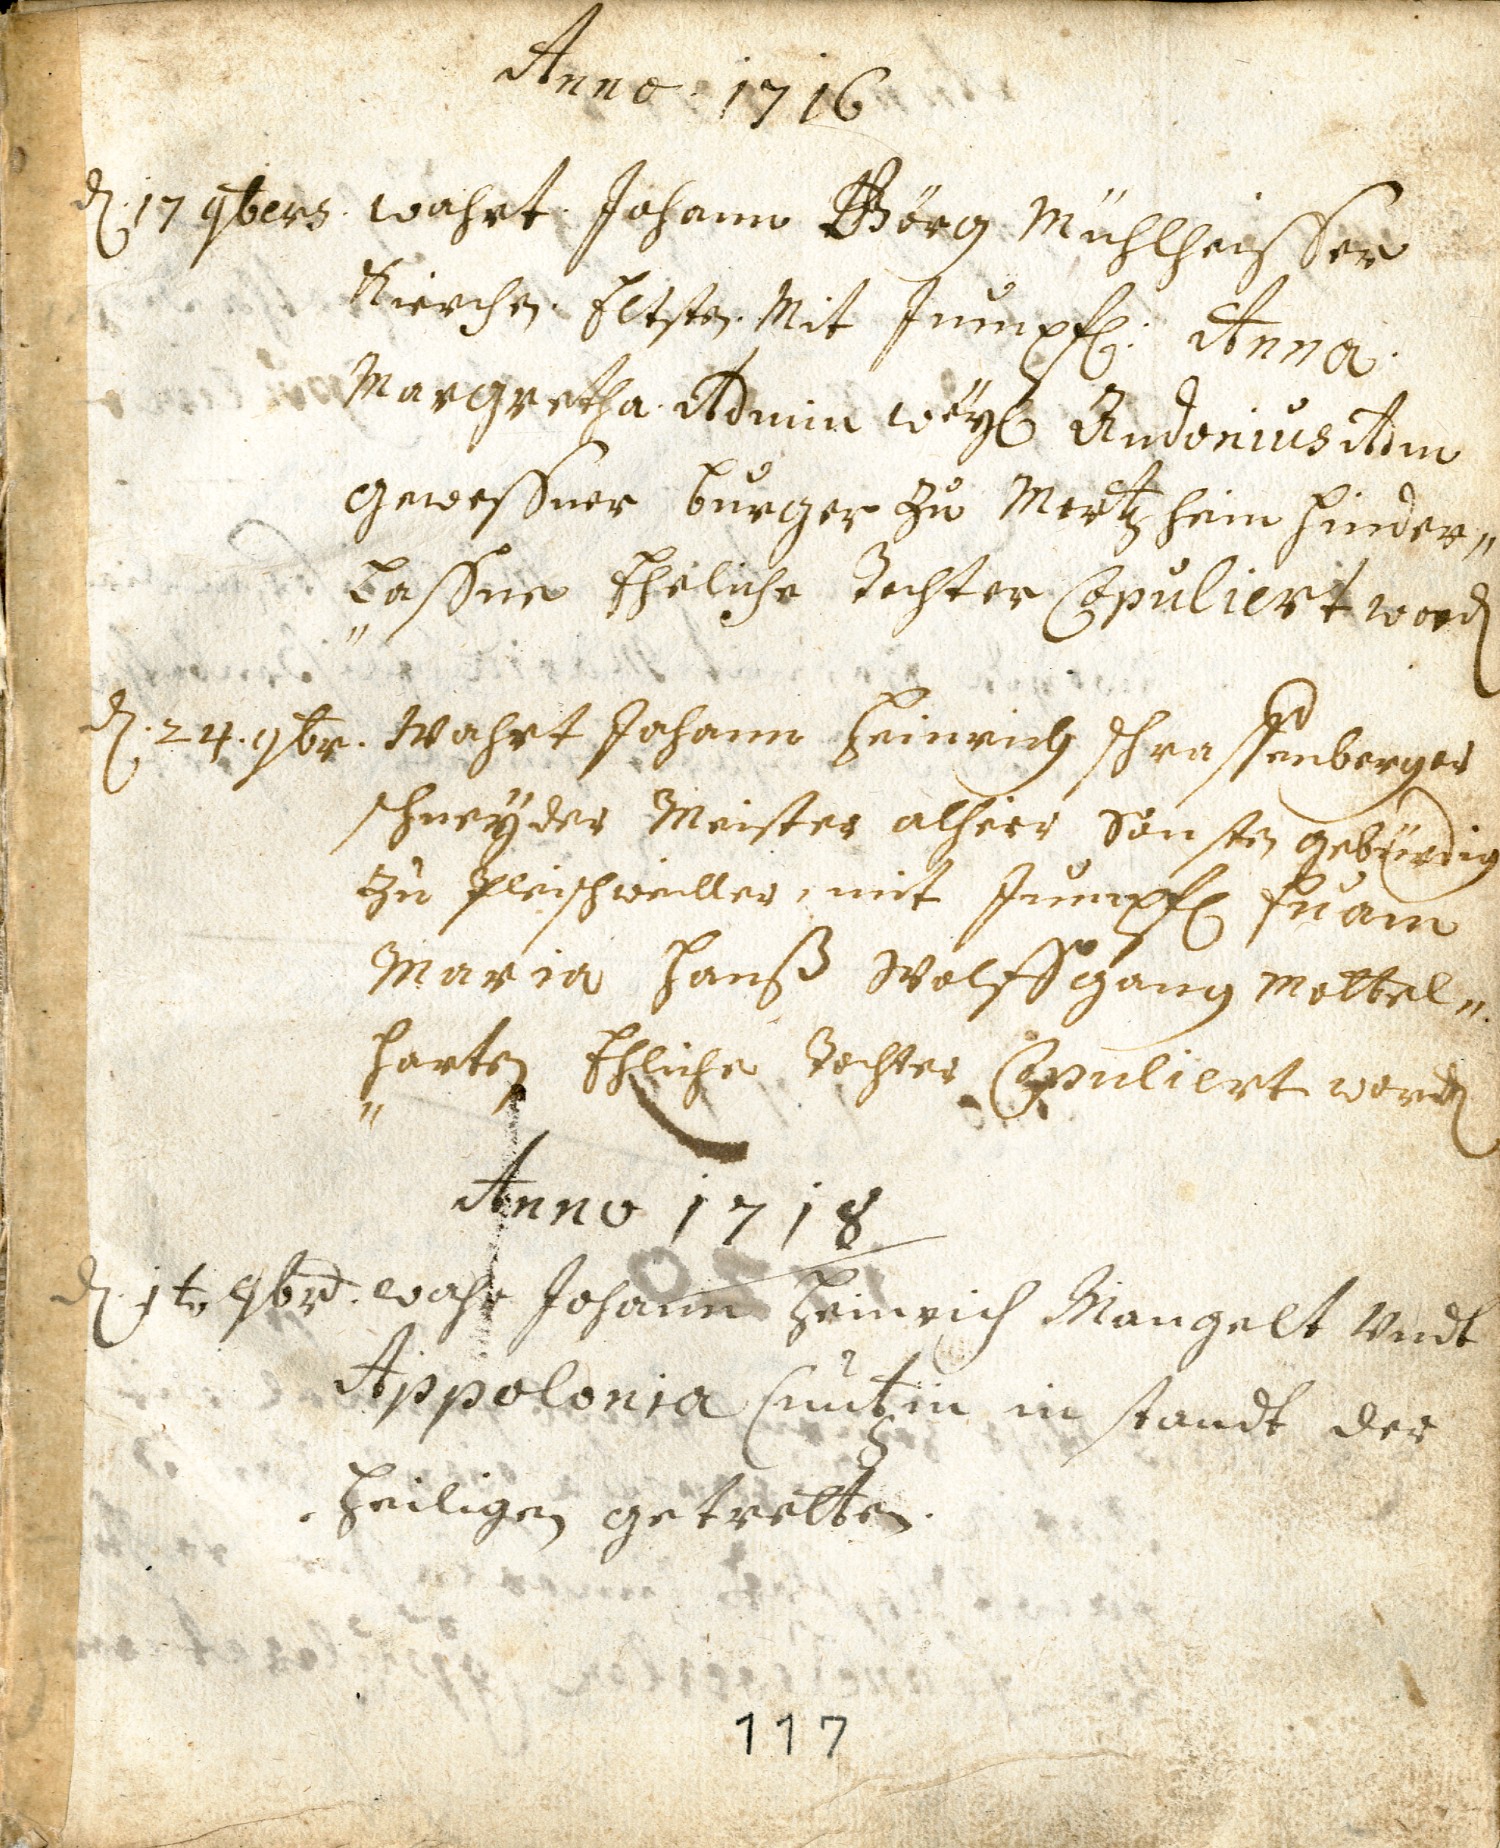 Anno 1716
d. 17 9bers. wahrt Johann Görg Mühlheisser
Kierchen Eltsten Mit Jumpf: Anna
Margretha Admin weyl Andonius Adm
gewessner burger zu Mertzheim hinder„
„Lassne Eheliche Tochter Copuliert word
d. 24. 9br. Wahrt Johann Heinrich schrassenberger
schneyder Meister alhier sonsten gebürdig
zu Pleischweiller, mit Jumpf
Maria Hanß Wolffgang Mettel„
„harten Ehliche Tochter Copuliert word
Anno 1718
d. 1to 9br. wahr Johann Heinrich Mangelt Undt
Appolonia Cuntzin in standt der
Heiligen getretten.
117